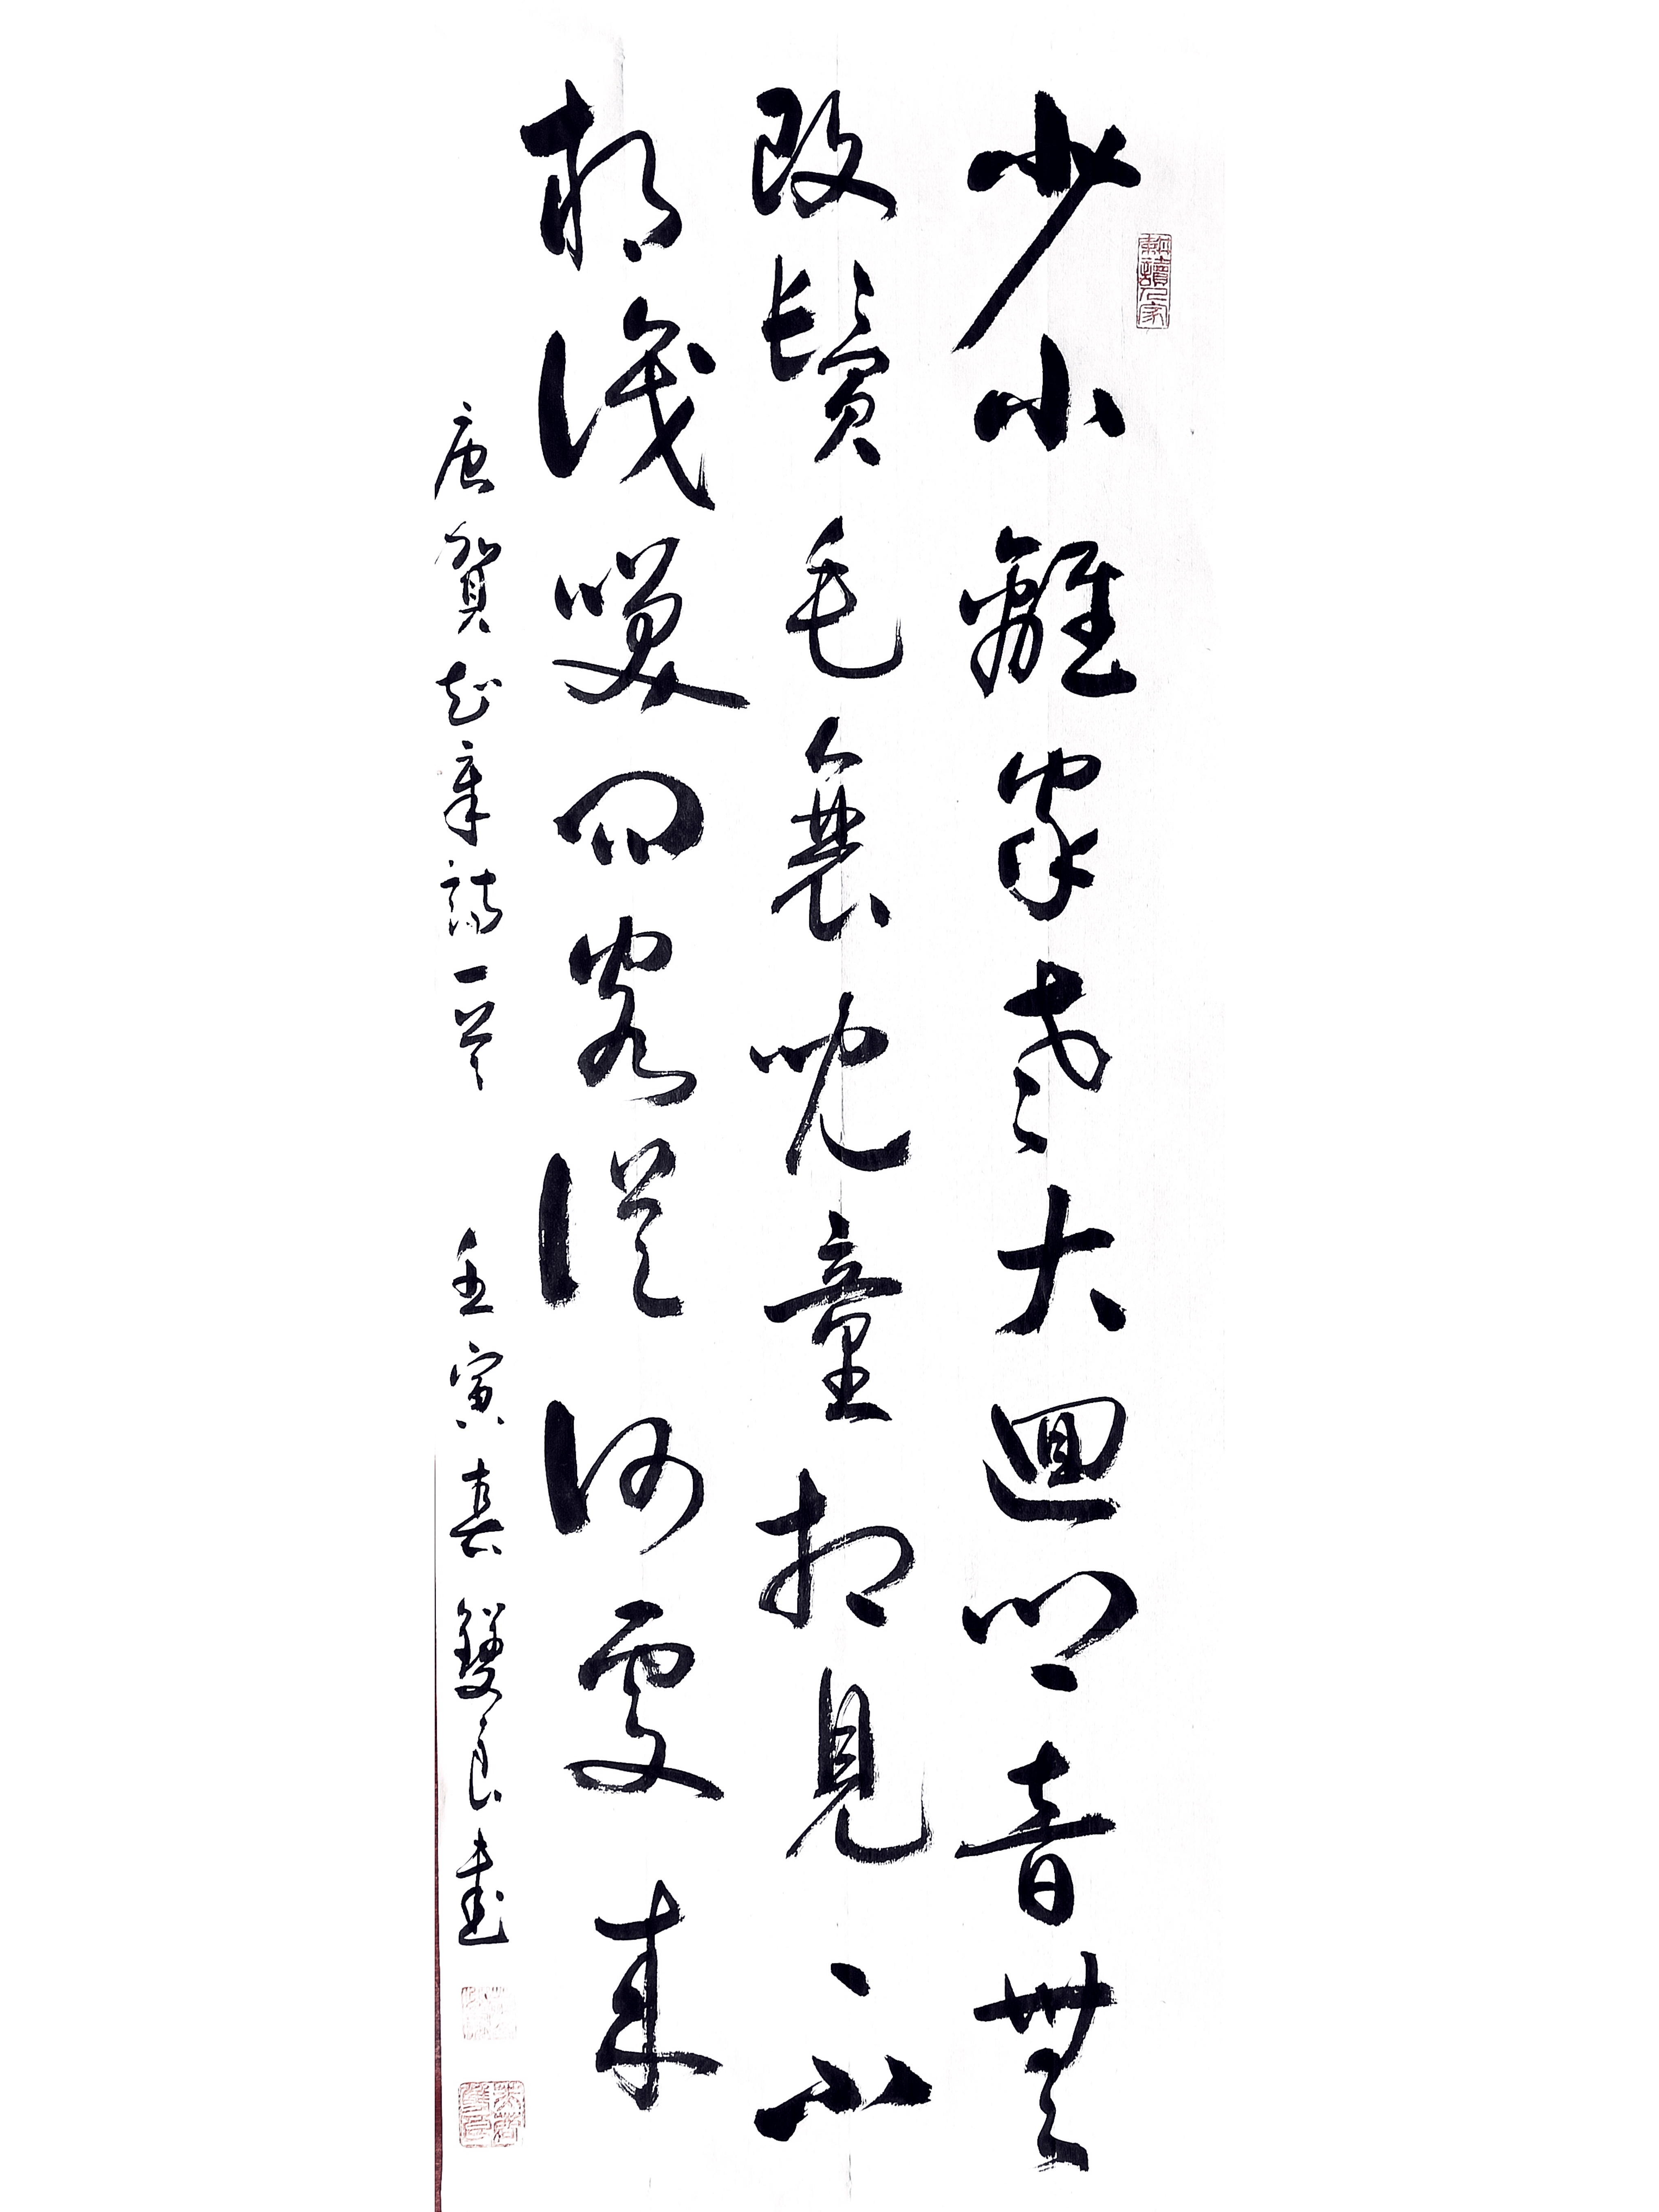 少小離家老大迴鄉音無
改鬢毛衰兒童相見不
相識笑問客從何處來
唐賀知章詩一首 壬寅 雙良書